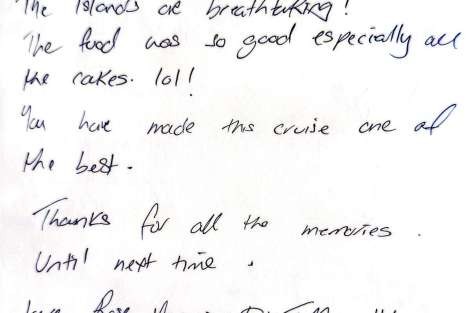 The Islands are breathtaking!
The food was so good especially all
the cakes. lol!
You have made this cruise one of
the best.
Thanks for all the memories.
Until next time.
Love